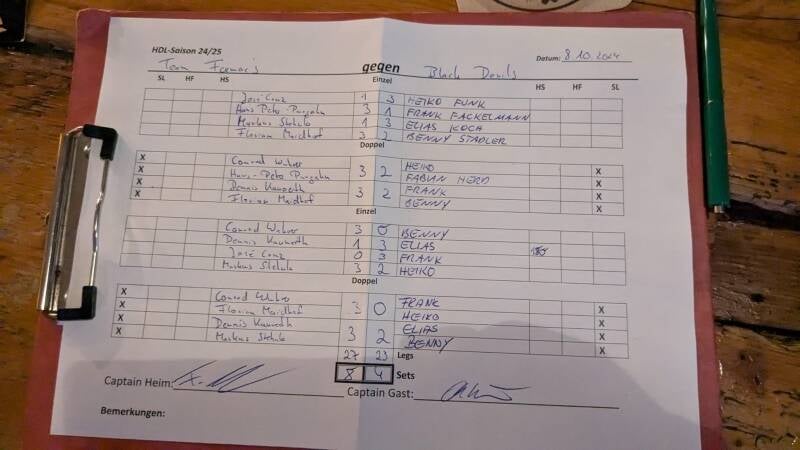 HDL-Saison 24/25 Datum: 8.10.2024
Team Framar's gegen Black Devils
SL HF HS Einzel HS HF SL
José Cruz 1 3 HEIKO FUNK
Hans-Peter 3 1 FRANK FACKELMANN
Markus 1 3 ELIAS KOCH
Florian Maidhof 3 2 BENNY STADLER
Doppel
X Conrad 3 2 HEIKO X
X Hans-Peter FABIAN HERD X
X Dennis 3 2 FRANK X
X Florian Maidhof BENNY X
Einzel
Conrad 3 0 BENNY
Dennis 1 3 ELIAS
José Cruz 0 3 FRANK
Markus 3 2 HEIKO
Doppel
X Conrad 3 0 FRANK X
X Florian Maidhof HEIKO X
X Dennis 3 2 ELIAS X
X Markus BENNY X
27 23 Legs
8 4 Sets
Captain Heim: Captain Gast:
Bemerkungen: